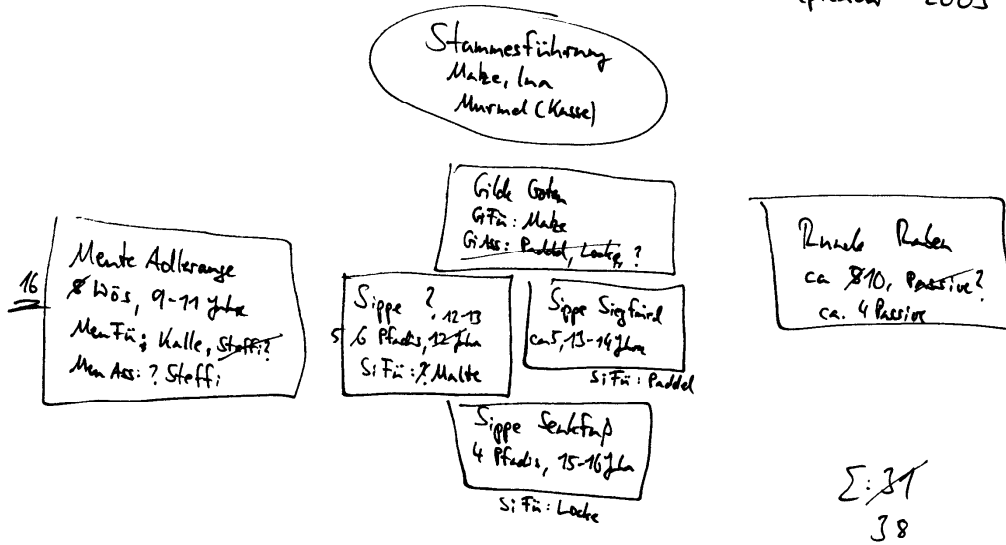 2005
Stammesführung
Matze, Ina
Murmel (Kasse)
Gilde Goten
GiFü: Matze
GiAss: Paddel, Locke, ?
16
Meute Adlerauge
8 Wös, 9-11 Jahre
MeuFü: Kalle, Steffi?
MeuAss: ? Steffi
Sippe ?
12-13
5 6 Pfadis, 12 Jahre
SiFü: ? Malte
Sippe Siegfried
ca 5, 13-14 Jahre
SiFü: Paddel
Sippe Senkfuß
4 Pfadis, 15-16 Jahre
SiFü: Locke
Runde Raben
ca 810, Passive?
ca. 4 Passive
Σ: 31
38